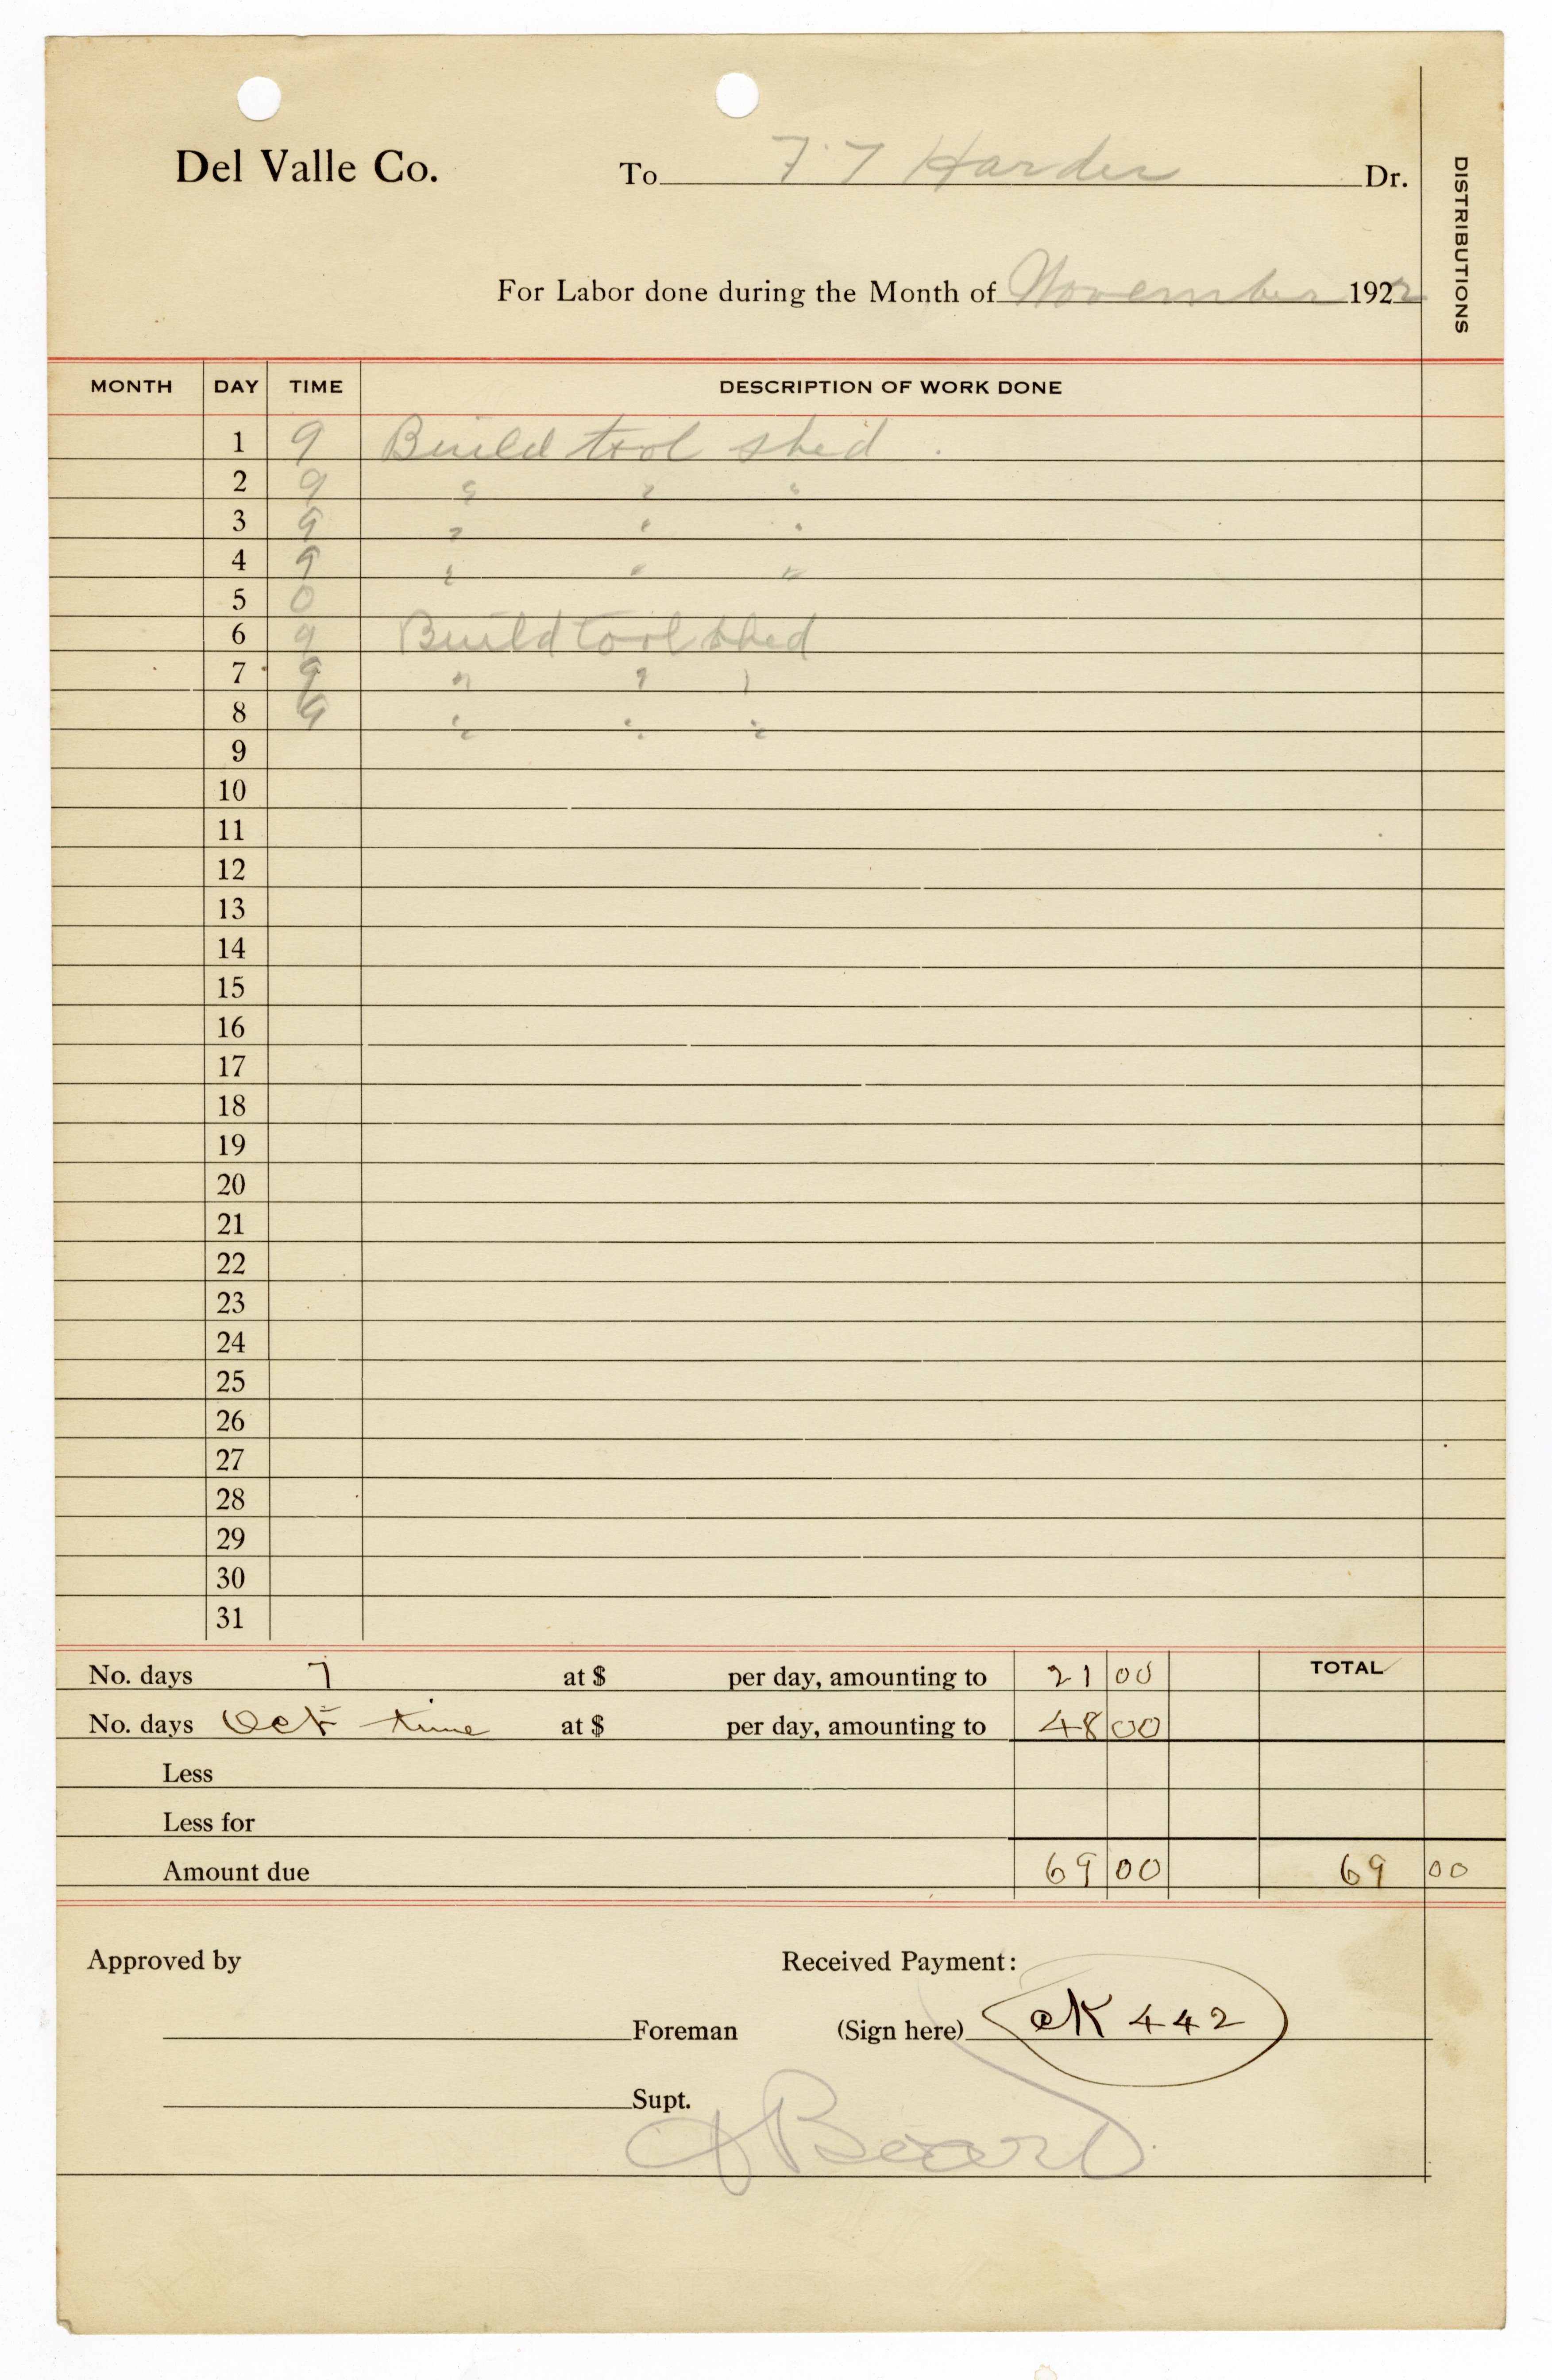 Del Valle Co. To F. F. Harder Dr.
DISTRIBUTIONS
For Labor done during the Month of November 1922
MONTH DAY TIME DESCRIPTION OF WORK DONE
1 9 Build tool shed.
2 9 " " "
3 9 " " "
4 9 " " "
5 0
6 9 Build tool shed
7 9 " " "
8 9 " " "
9
10
11
12
13
14
15
16
17
18
19
20
21
22
23
24
25
26
27
28
29
30
31
No. days 7 at $ per day, amounting to 21 00 TOTAL
No. days Oct time at $ per day, amounting to 48 00
Less
Less for
Amount due 69 00 69 00
Approved by Received Payment:
Foreman (Sign here) CK 442
Supt.
Beard